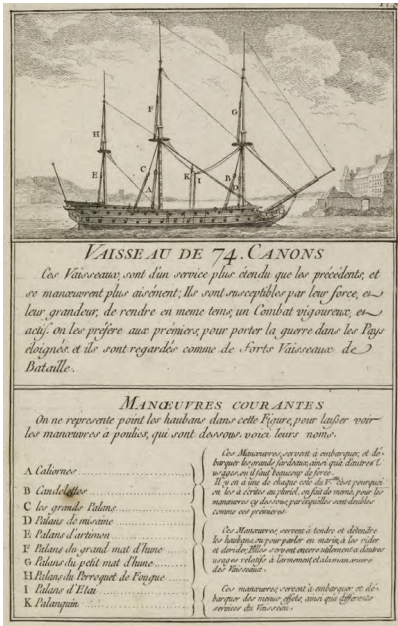 H
F
G
E
C
A
K
I
B
D
VAISSEAU DE 74. CANONS
Ces Vaisseaux, sont d'un service plus étendu que les précédents, et
se manœuvrent plus aisément; Ils sont susceptibles par leur force, et
leur grandeur, de rendre en meme tems, un Combat vigoureux, et
actif. on les préfére aux prémiers, pour porter la guerre dans les Pays
éloignés. et ils sont regardés comme de forts Vaisseaux de
Bataille.
MANŒUVRES COURANTES
On ne represente point les haubans dans cette Figure, pour laisser voir
les manœuvres a poulies, qui sont dessous. voici leurs noms.
A Caliornes
B Candelettes
C les grands Palans
D Palans de misaine
E Palans d'artimon
F Palans du grand mat d'hune
G Palans du petit mat d'hune
H Palans du Perroquet de Fougue
I Palans d'Etai
K Palanquin
Ces Manœuvres, servent à embarquer, et dé-
barquer les grands fardeaux, ainsi qu'à d'autres
usages, ou il faut beaucoup de force.
Il y en a une de chaque coté du pourquoi
on les a écrites au pluriel, on fait de meme, pour les
manœuvres cy dessous, parcequ'elles sont doubles
comme ces prémieres.
Ces Manœuvres, servent à tendre et détendre
les haubans, ou pour parler en marin, à les rider
et derider, Elles servent encore à d'autres
usages relatifs à l'armement, et à la manœuvre
des Vaisseaux.
Ces manœuvres, servent à embarquer et dé-
barquer des menus effets, ainsi qu'à differents
services du Vaisseau.